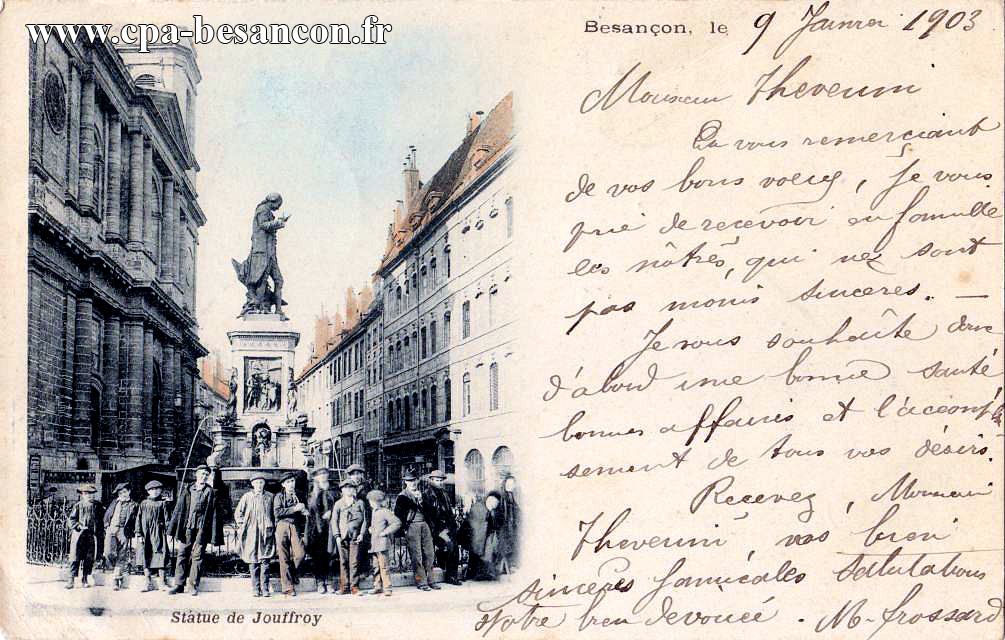 www.cpa-besancon.fr
Besançon, le 9 Janvier 1903
Monsieur Thevenin
En vous remerciant
de vos bons voeux, Je vous
prie de recevoir en famille
les nôtres, qui ne sont
pas moins sinceres. —
Je vous souhaite donc
d'abord une bonne santé
bonnes affaires et l'accomplis
sement de tous vos désirs.
Recevez, Monsieur
Thevenin, nos bien
sincères & amicales salutations
Votre bien devouée M. Frossard
Statue de Jouffroy